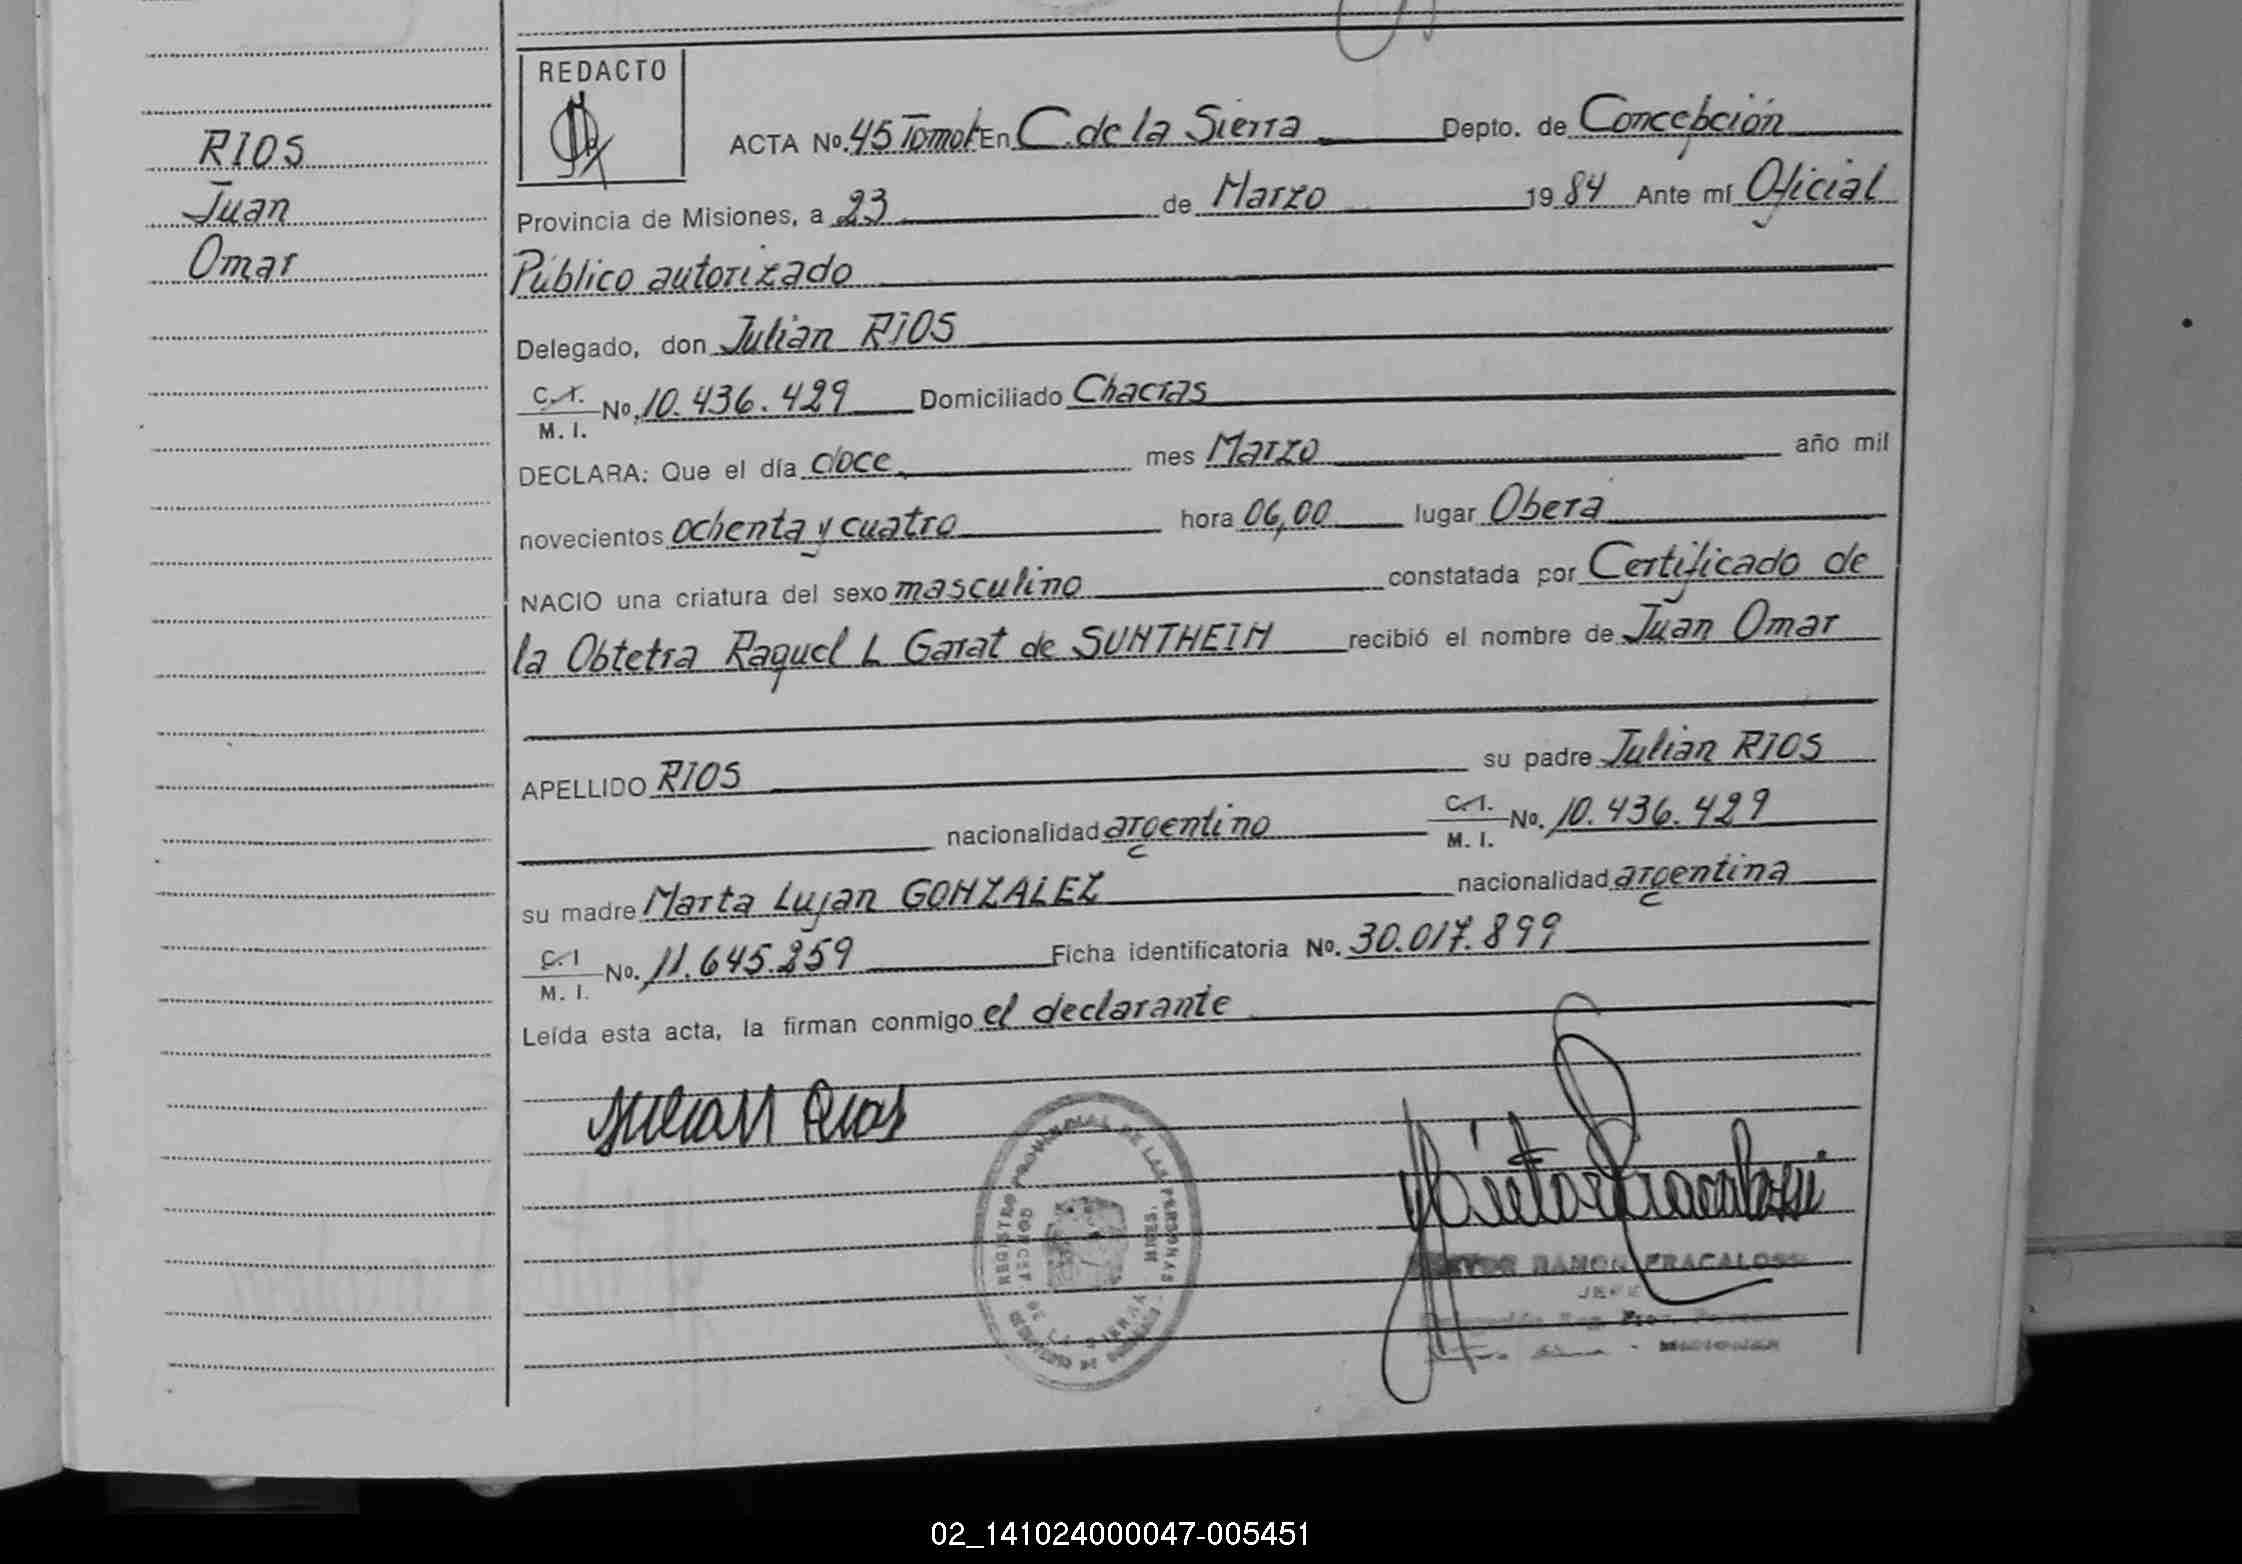 RIOS
Juan
Omar
REDACTO
ACTA No. 45 Tomo I En C. de la Sierra Depto. de Concepción
Provincia de Misiones, a 23 de Marzo 1984 Ante mí Oficial
Público autorizado
Delegado, don Julian RIOS
C.I. M. I. No. 10.436.429 Domiciliado Chacras
DECLARA: Que el día doce mes Marzo año mil
novecientos ochenta y cuatro hora 06,00 lugar Oberá
NACIO una criatura del sexo masculino constatada por Certificado de
la Obtetra Raquel L Garat de SUNTHEIM recibió el nombre de Juan Omar
APELLIDO RIOS su padre Julian RIOS
nacionalidad argentino C.I. M. I. No. 10.436.429
su madre Marta Lujan GONZALEZ nacionalidad argentina
C.I M. I. No. 11.645.259 Ficha identificatoria No. 30.017.899
Leída esta acta, la firman conmigo el declarante
Julian Rios
REGISTRO PROVINCIAL DE LAS PERSONAS
CONCEP. DE LA SIERRA MNES.
RAMON FRACALOSSI
JEFE
MISIONES
02_141024000047-005451